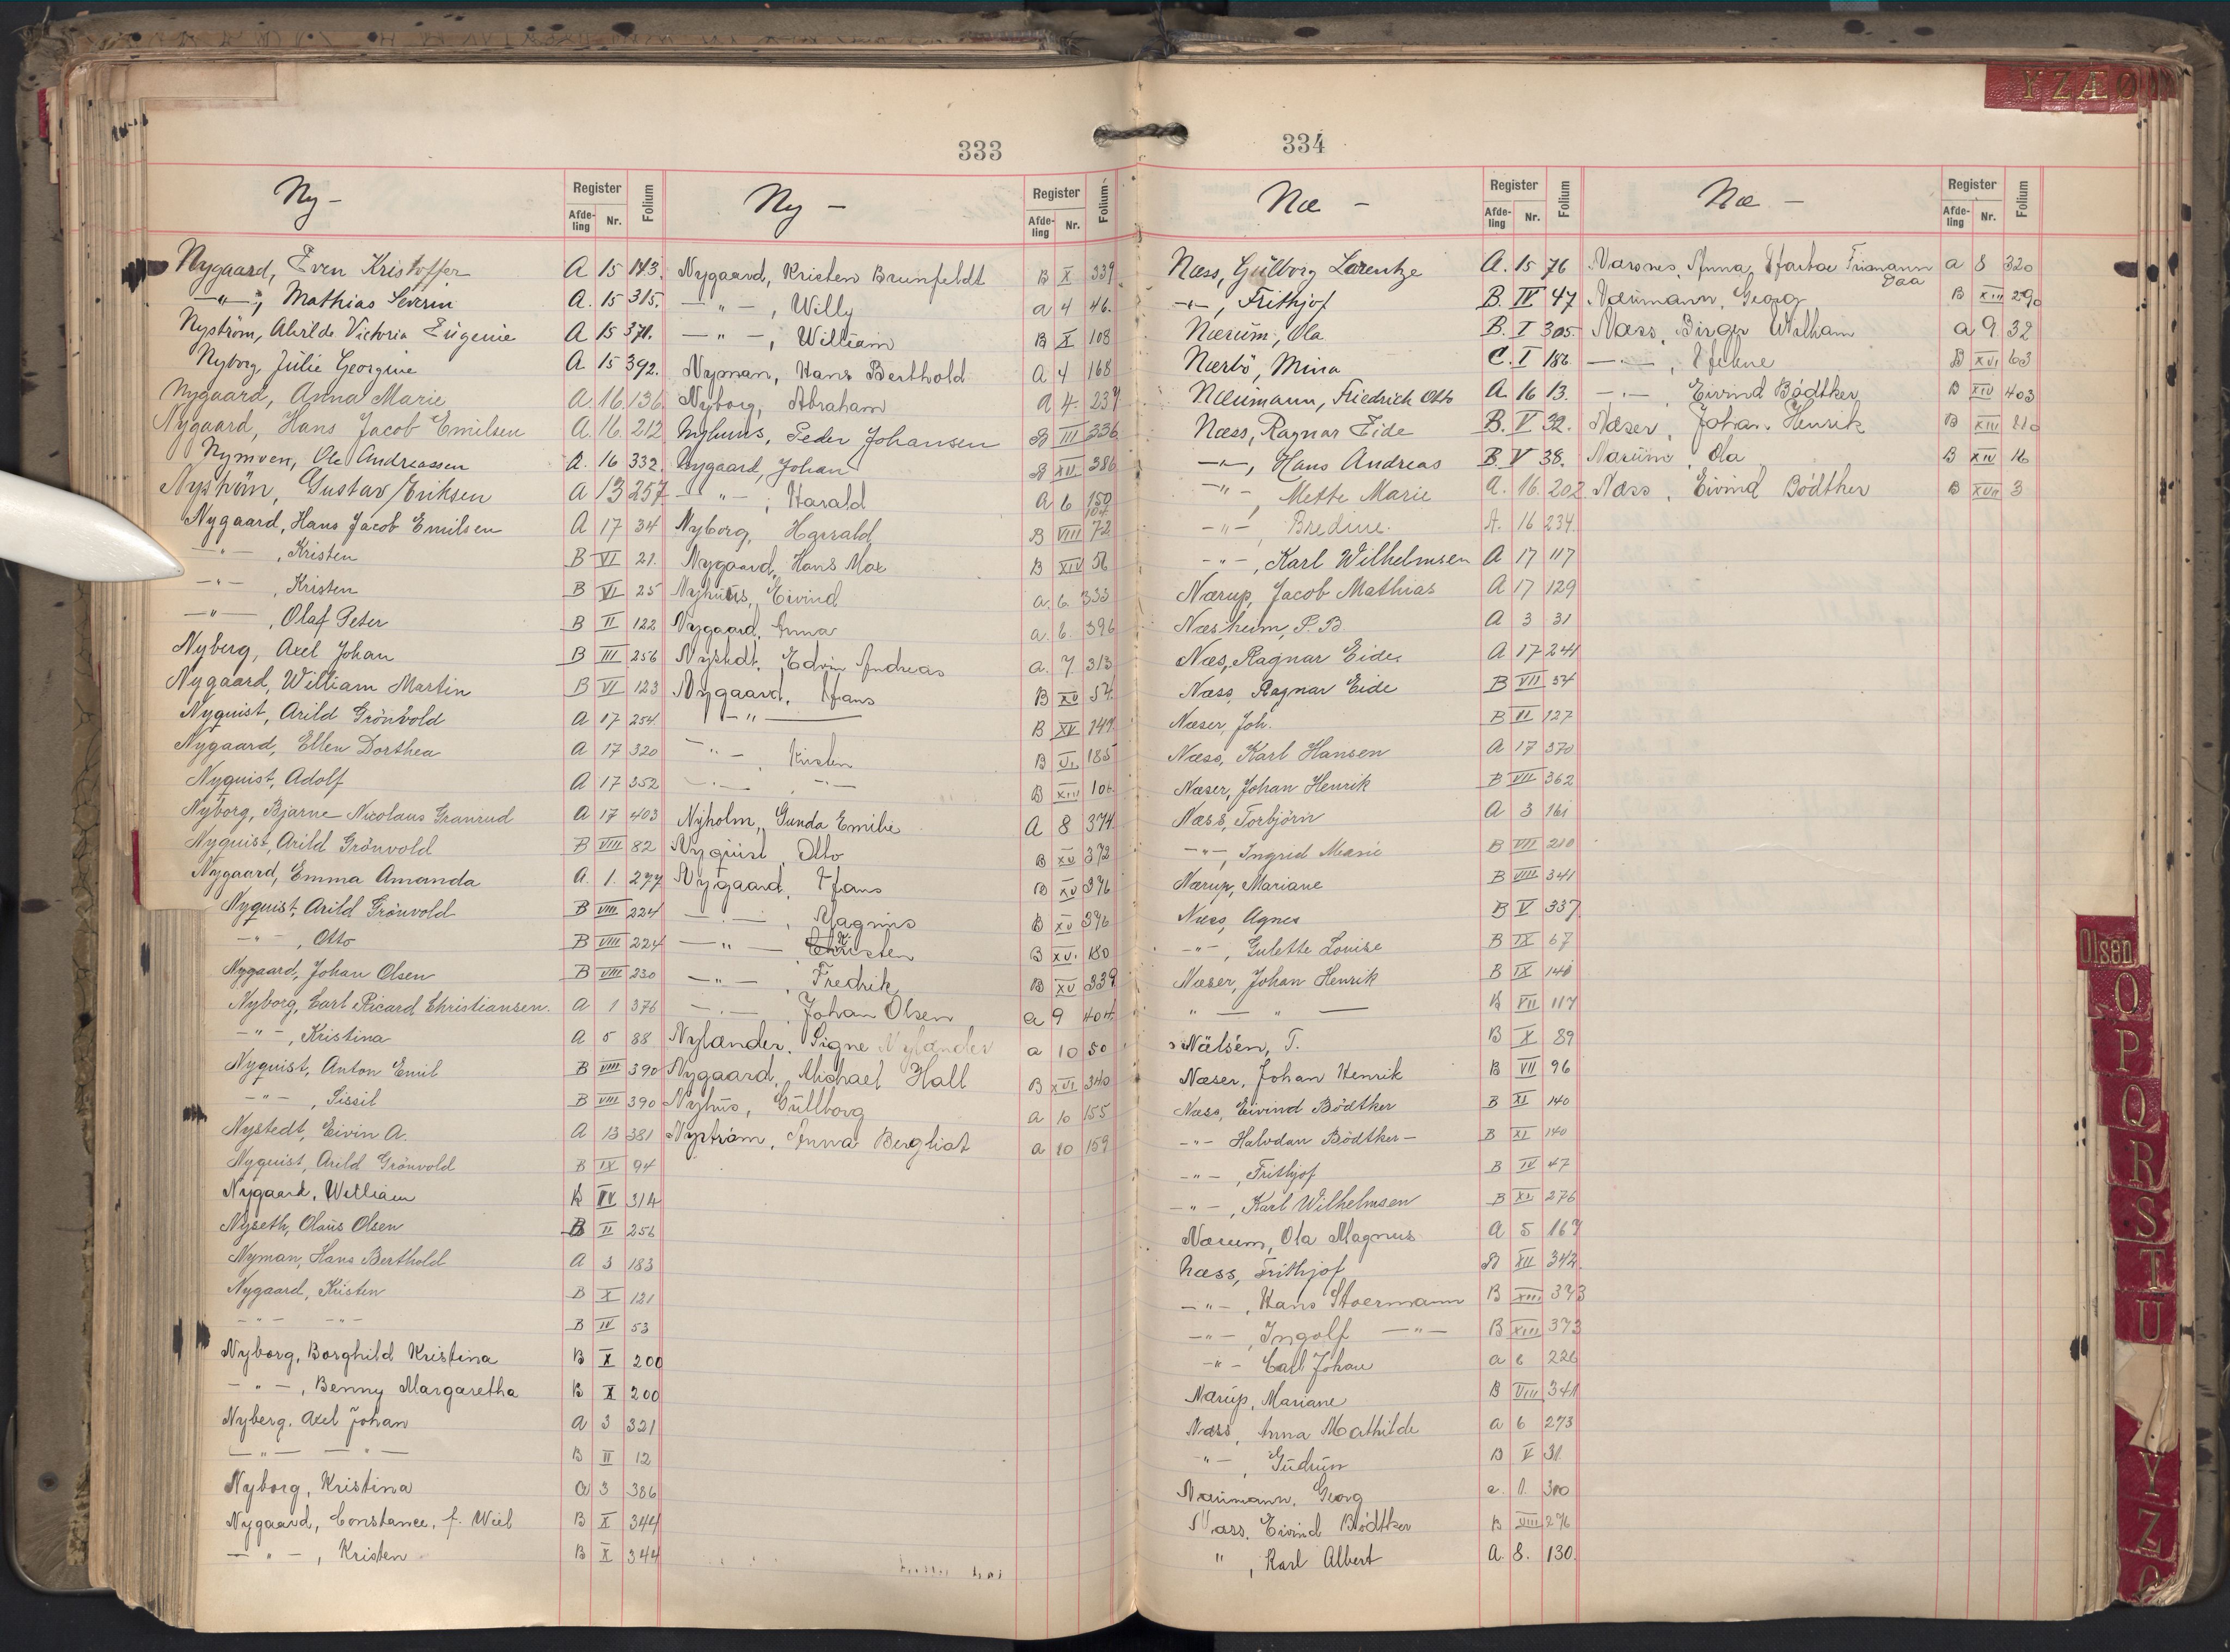 333
Ny-
Register
Afde-ling
Nr.
Folium
Nygaard, Even Kristoffer A 15 143.
—"—, Mathias Severin A. 15 315.
Nyström, Alvilde Victoria Eugenie A 15 371.
Nyborg, Julie Georgine A. 15 392.
Nygaard, Anna Marie A. 16. 136.
Nygaard, Hans Jacob Emilsen A. 16. 212
Nymoen, Ole Andreassen A. 16 332.
Nyström, Gustav Eriksen A 13 257
Nygaard, Hans Jacob Emilsen A 17 34
—"—, Kristen B VI 21.
—"—, Kristen B VI 25
—"—, Olaf Peter B II 122
Nyberg, Axel Johan B III 256
Nygaard, William Martin B VI 123
Nyquist, Arild Grönvold A 17 254
Nygaard, Ellen Dorthea A 17 320
Nyquist, Adolf A 17 352
Nyborg, Bjarne Nicolaus Granrud A 17 403
Nyquist, Arild Grönvold B VIII 82
Nygaard, Emma Amanda A. 1. 277
Nyquist, Arild Grönvold B VIII 224
—"—, Otto B VIII 224
Nygaard, Johan Olsen B VIII 230
Nyborg, Carl Ricard Christiansen. A 1 376
—"—, Kristina A 5 88
Nyquist, Anton Emil B VIII 390
—"—, Sissil B VIII 390
Nystedt, Eivin A. A 13 381
Nyquist, Arild Grönvold B IX 94
Nygaard, William B IV 314
Nyseth, Olaus Olsen B II 256
Nyman, Hans Berthold A 3 183
Nygaard, Kristen B X 121
—"— —"— B IV 53
Nyborg, Borghild Kristina B X 200
—"—, Benny Margaretha B X 200
Nyberg, Axel Johan A 3 321
—"— —"— B II 12
Nyborg, Kristina A 3 386
Nygaard, Constance, f. Wiel B X 344
—"—, Kristen B X 344
Ny —
Register
Afde-ling
Nr.
Folium
Nygaard, Kristen Brunfeldt B X 339
—"—, Willy a 4 46.
—"—, William B X 108
Nyman, Hans Berthold A 4 168
Nyborg, Abraham A 4. 237
Nyhuus, Peder Johansen B III 336
Nygaard, Johan B XII 386
—"—, Harald A 6 150
Nyborg, Harald B VIII 72
Nygaard, Hans Max B XIV 56
Nyhuus, Eivind a. 6. 333
Nygaard, Anna a. 6. 396
Nystedt, Edvin Andreas a. 7. 313
Nygaard, Hans B XV 57.
—"— B XV 147.
—"—, Kristen B VI 185
—"— —"— B XIII 106
Nyholm, Gunda Emilie A 8 374
Nyquist, Otto B XV 372
Nygaard, Hans B XV 376
—"—, Magnus B XV 376
—"—, Kristen B XVI 180
—"—, Fredrik B XV 339
—"—, Johan Olsen a 9 404
Nylander, Signe Nylander a 10 50
Nygaard, Michael Hall B XVI 340
Nyhus, Gullborg a 10 155
Nyström, Anna Bergliot a 10 159
334
Næ —
Register
Afde-ling
Nr.
Folium
Næss, Gulborg Lorentze A. 15 76
—"—, Frithjof B. IV 47
Nærum, Ola B. I 305
Nærbö, Mina C. I 186
Næumann, Friedrich Otto A. 16 13.
Næss, Ragnar Eide B. V 32.
—"—, Hans Andreas B. V 38.
—"—, Mette Marie A. 16. 202
—"—, Bredine. A. 16 234.
—"—, Karl Wilhelmsen A 17 117
Nærup, Jacob Mathias A 17 129
Næsheim, P. B. A 3 31
Næs, Ragnar Eide A 17 241
Næss, Ragnar Eide B VII 54
Næser, Joh. B VI 127
Næss, Karl Hansen A 17 370
Næser, Johan Henrik B VII 362
Næss, Torbjörn A 3 161
—"—, Ingrid Marie B VIII 210
Nærup, Mariane B VIII 341
Næss, Agnes B V 337
—"—, Gulette Louise B IX 67
Næser, Johan Henrik B IX 148
" — " — B VII 117
Nälsén, T. B X 89
Næser, Johan Henrik B VII 96
Næss, Eivind Bödtker B XI 140
—"— Halvdan Bödtker — B XI 140
—"—, Frithjof B IV 47
—"—, Karl Wilhelmsen B XI 276
Nærum, Ola Magnus A 5 167
Næss, Frithjof B XII 342.
—"—, Hans Stoermann B XIII 373
—"—, Ingolf —"— B XIII 373
—"— Carl Johan a 6 226
Nærup, Mariane B VIII 341
Næss, Anna Mathilde a 6 273
—"—, Gudrun B V 31
Naumann, Georg a. 1. 300
Næss, Eivind Bödtker B VIII 276
", Karl Albert A. 8. 130.
Næ —
Register
Afde-ling
Nr.
Folium
Næsnes, Anna Frimann Daa a 8 320
Naumann, Georg B XIII 290
Næss, Birger William a 9. 32
—"—, Helene B XVI 63
—"—, Eivind Bödtker B XIV 403
Næser, Johan Henrik B XIII
Nærum, Ola B XIV 16
Næss, Eivind Bödtker B XVII 3
YZÆØ
Olsen
O
P
Q
R
S
T
U
Y
Z